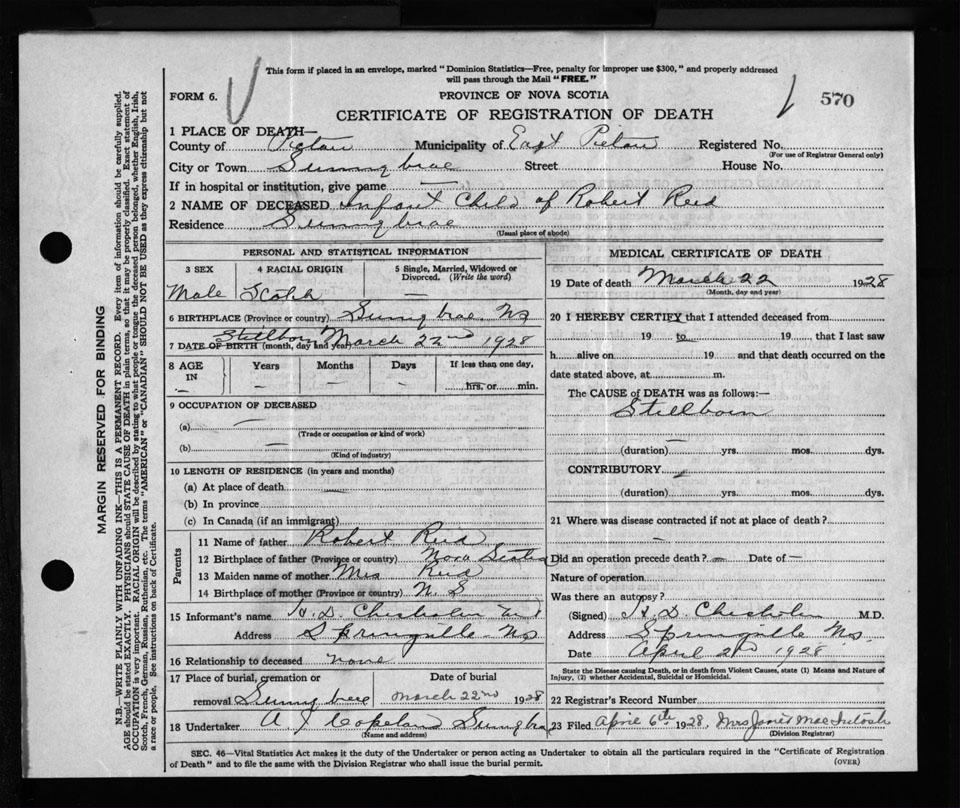 This form if placed in an envelope, marked "Dominion Statistics—Free, penalty for improper use $300," and properly addressed
will pass through the Mail "FREE."
FORM 6.
PROVINCE OF NOVA SCOTIA
570
CERTIFICATE OF REGISTRATION OF DEATH
1 PLACE OF DEATH—
County of Pictou Municipality of East Pictou Registered No.
(For use of Registrar General only)
City or Town Sunnybrae Street House No.
If in hospital or institution, give name —
2 NAME OF DECEASED Infant Child of Robert Reid
Residence Sunnybrae
(Usual place of abode)
PERSONAL AND STATISTICAL INFORMATION
3 SEX 4 RACIAL ORIGIN 5 Single, Married, Widowed or Divorced. (Write the word)
Male Scotch —
6 BIRTHPLACE (Province or country) Sunnybrae, NS
Stillborn March 22nd 1928
7 DATE OF BIRTH (month, day and year)
8 AGE IN Years Months Days If less than one day,
— — — — hrs. or min.
9 OCCUPATION OF DECEASED
(a) —
(Trade or occupation or kind of work)
(b) —
(Kind of industry)
10 LENGTH OF RESIDENCE (in years and months)
(a) At place of death —
(b) In province
(c) In Canada (if an immigrant)
Parents
11 Name of father Robert Reid
12 Birthplace of father (Province or country) Nova Scotia
13 Maiden name of mother Mrs Reid
14 Birthplace of mother (Province or country) N. S
15 Informant's name H. D. Chisholm
Address Springville NS
16 Relationship to deceased none
17 Place of burial, cremation or Date of burial
removal Sunnybrae March 22nd 1928
18 Undertaker A J Copeland Sunnybrae
(Name and address)
MEDICAL CERTIFICATE OF DEATH
19 Date of death March 22 1928
(Month, day and year)
20 I HEREBY CERTIFY that I attended deceased from
19 to 19 , that I last saw
h alive on 19 and that death occurred on the
date stated above, at m.
The CAUSE OF DEATH was as follows:—
Stillborn
—
(duration) yrs. mos. dys.
CONTRIBUTORY
(duration) yrs. mos. dys.
21 Where was disease contracted if not at place of death?
—
Did an operation precede death? — Date of —
Nature of operation
Was there an autopsy?
(Signed) H D. Chisholm M.D.
Address Springville NS
Date April 2nd 1928
State the Disease causing Death, or in death from Violent Causes, state (1) Means and Nature of
Injury, (2) whether Accidental, Suicidal or Homicidal.
22 Registrar's Record Number
23 Filed April 6th 1928, Mrs James MacIntosh
(Division Registrar)
SEC. 46—Vital Statistics Act makes it the duty of the Undertaker or person acting as Undertaker to obtain all the particulars required in the "Certificate of Registration
of Death" and to file the same with the Division Registrar who shall issue the burial permit.
(OVER)
MARGIN RESERVED FOR BINDING
N.B.—WRITE PLAINLY WITH UNFADING INK—THIS IS A PERMANENT RECORD. Every item of information should be carefully supplied.
AGE should be stated EXACTLY. PHYSICIANS should STATE CAUSE OF DEATH in plain terms, so that it may be properly classified. Exact statement of
OCCUPATION is very important. RACIAL ORIGIN will be described by stating to what people or tongue the deceased person belonged, whether English, Irish,
Scotch, French, German, Russian, Ruthenian, etc. The terms "AMERICAN" or "CANADIAN" SHOULD NOT BE USED as they express citizenship but not
a race or people. See instructions on back of Certificate.